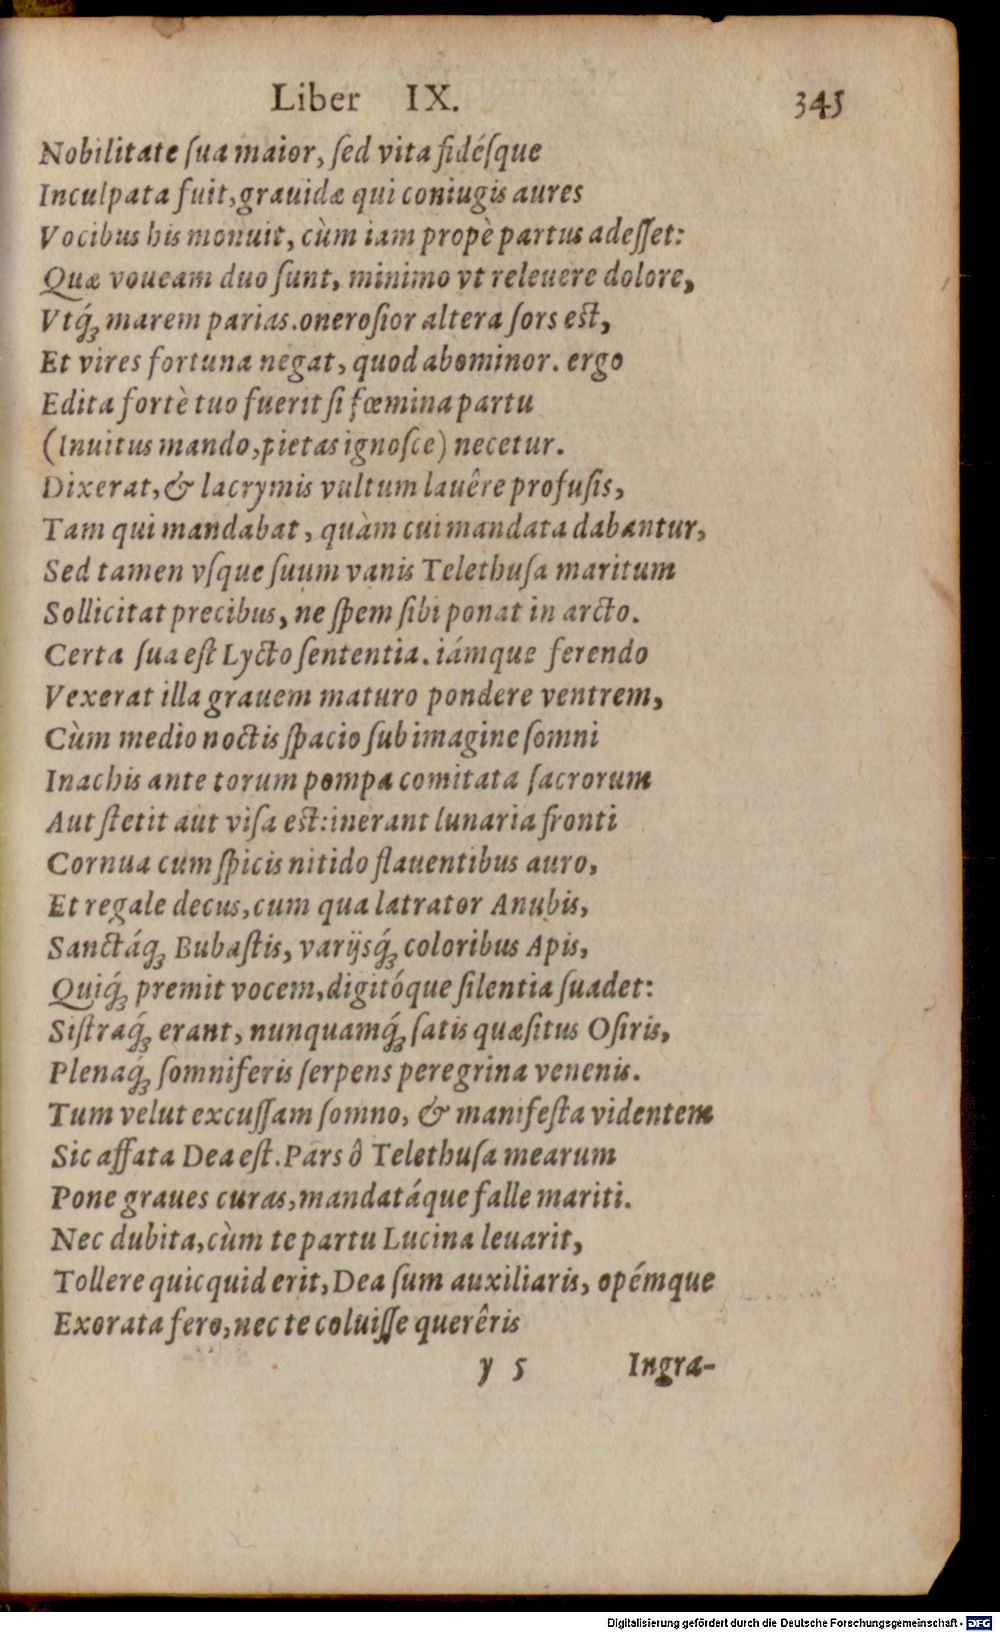 Liber IX. 345
Nobilitate ſua maior, ſed vita fidéſque
Inculpata fuit, grauidæ qui coniugis aures
Vocibus his monuit, cùm iam propè partus adeſſet:
Quæ voueam duo ſunt, minimo vt releuere dolore,
Vtq́; marem parias. oneroſior altera ſors est,
Et vires fortuna negat, quod abominor. ergo
Edita fortè tuo fuerit ſi fœmina partu
(Inuitus mando, pietas ignoſce) necetur.
Dixerat, & lacrymis vultum lauêre profuſis,
Tam qui mandabat, quàm cui mandata dabantur,
Sed tamen vſque ſuum vanis Telethuſa maritum
Sollicitat precibus, ne ſpem ſibi ponat in arcto.
Certa ſua eſt Lycto ſententia. iámque ferendo
Vexerat illa grauem maturo pondere ventrem,
Cùm medio noctis ſpacio ſub imagine ſomni
Inachis ante torum pompa comitata ſacrorum
Aut ſtetit aut viſa est: inerant lunaria fronti
Cornua cum ſpicis nitido flauentibus auro,
Et regale decus, cum qua latrator Anubis,
Sanctáq; Bubaſtis, varijsq́; coloribus Apis,
Quiq́; premit vocem, digitóque ſilentia ſuadet:
Siſtraq́; erant, nunquamq́; ſatis quæſitus Oſiris,
Plenaq́; ſomniferis ſerpens peregrina venenis.
Tum velut excuſſam ſomno, & manifeſta videntem
Sic affata Dea eſt. Pars ô Telethuſa mearum
Pone graues curas, mandatáque falle mariti.
Nec dubita, cùm te partu Lucina leuarit,
Tollere quicquid erit, Dea ſum auxiliaris, opémque
Exorata fero, nec te coluiſſe querêris
y 5 Ingra-
Digitalisierung gefördert durch die Deutsche Forschungsgemeinschaft - DFG